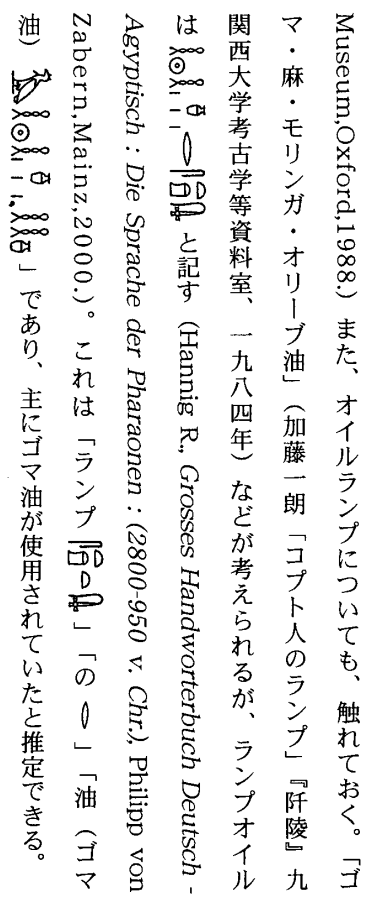 Museum,Oxford,1988.）また、オイルランプについても、触れておく。「ゴ
マ・麻・モリンガ・オリーブ油」（加藤一朗「コプト人のランプ」『阡陵』九
関西大学考古学等資料室、一九八四年）などが考えられるが、ランプオイル
は と記す（Hannig R., Grosses Handworterbuch Deutsch -
Agyptisch : Die Sprache der Pharaonen : (2800-950 v. Chr.), Philipp von
Zabern,Mainz,2000.）。これは「ランプ 」「の 」「油（ゴマ
油） 」であり、主にゴマ油が使用されていたと推定できる。